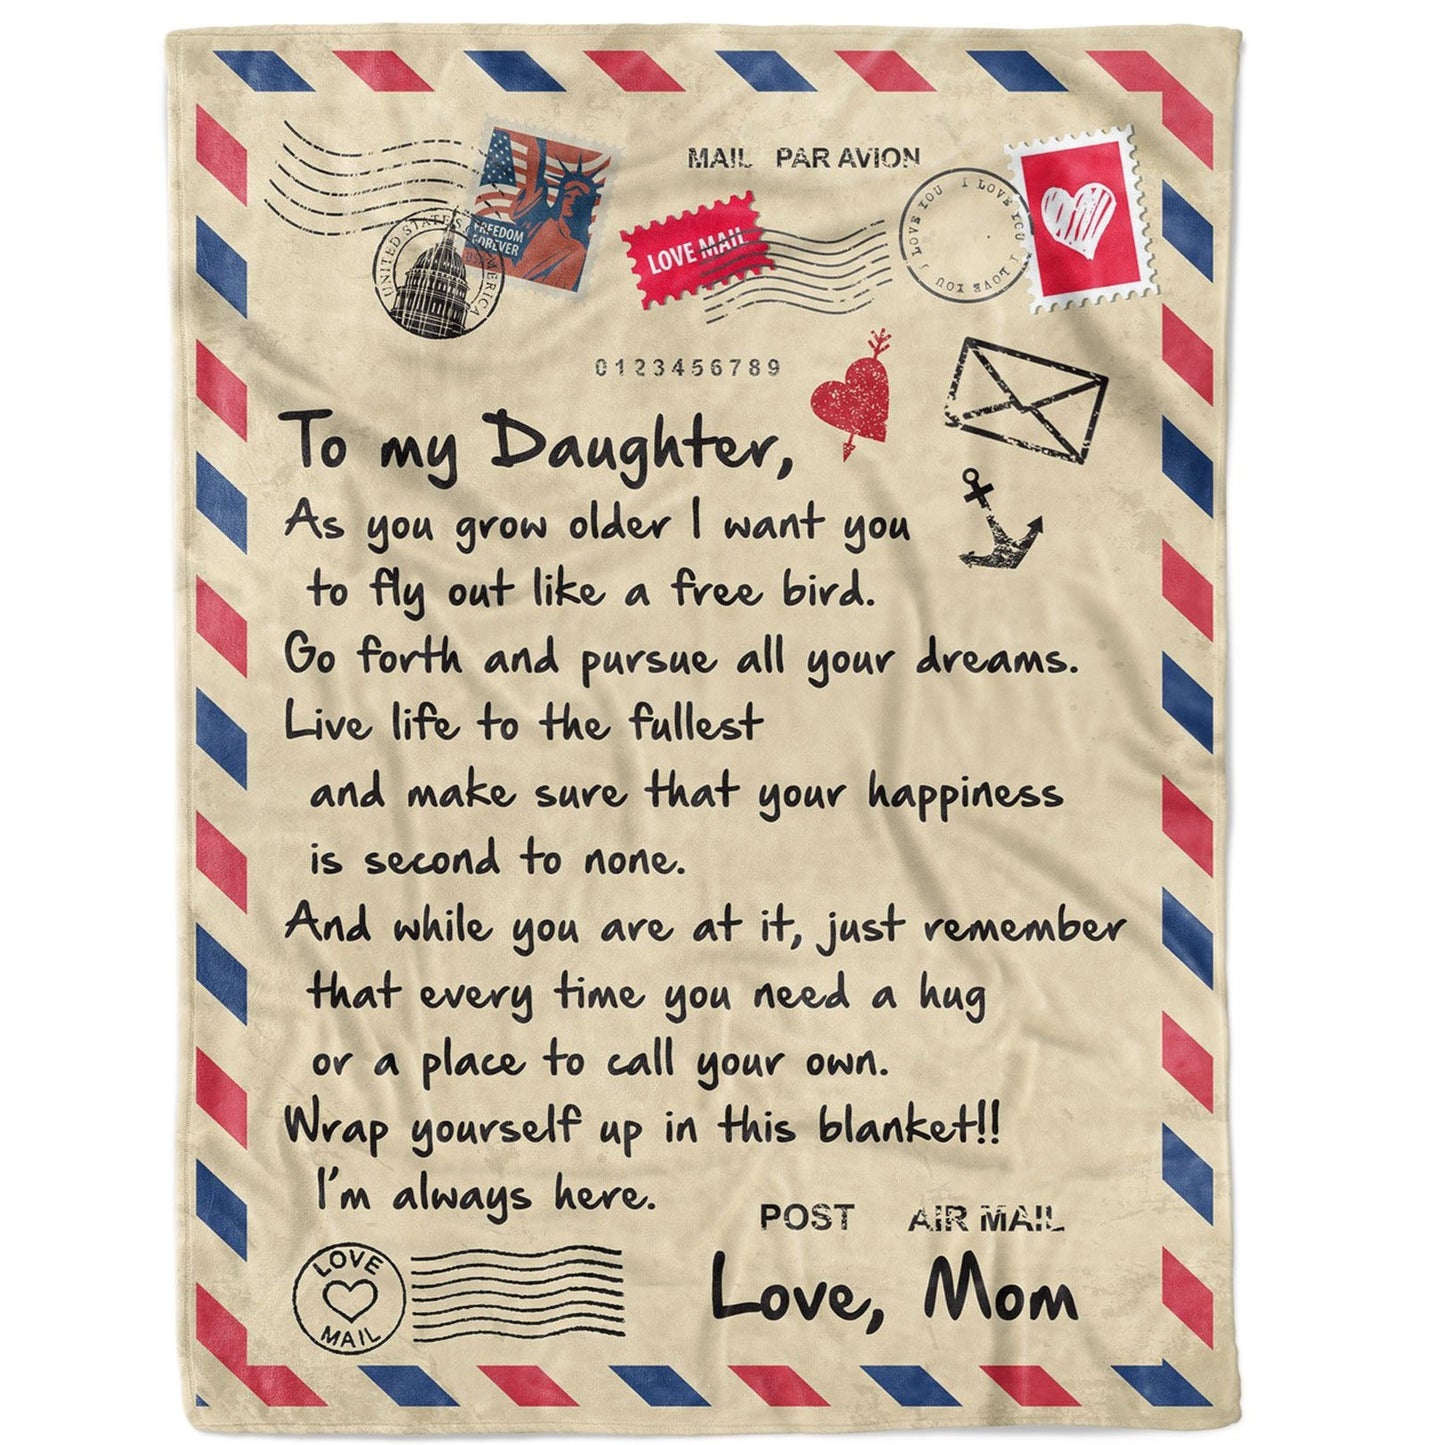 MAIL PAR AVION
FREEDOM
FOREVER
UNITED STATES AMERICA
LOVE MAIL
I LOVE YOU I LOVE YOU I LOVE YOU I LOVE YOU
0123456789
To my Daughter,
As you grow older I want you
to fly out like a free bird.
Go forth and pursue all your dreams.
Live life to the fullest
and make sure that your happiness
is second to none.
And while you are at it, just remember
that every time you need a hug
or a place to call your own.
Wrap yourself up in this blanket!!
I'm always here.
POST AIR MAIL
LOVE
MAIL
Love, Mom